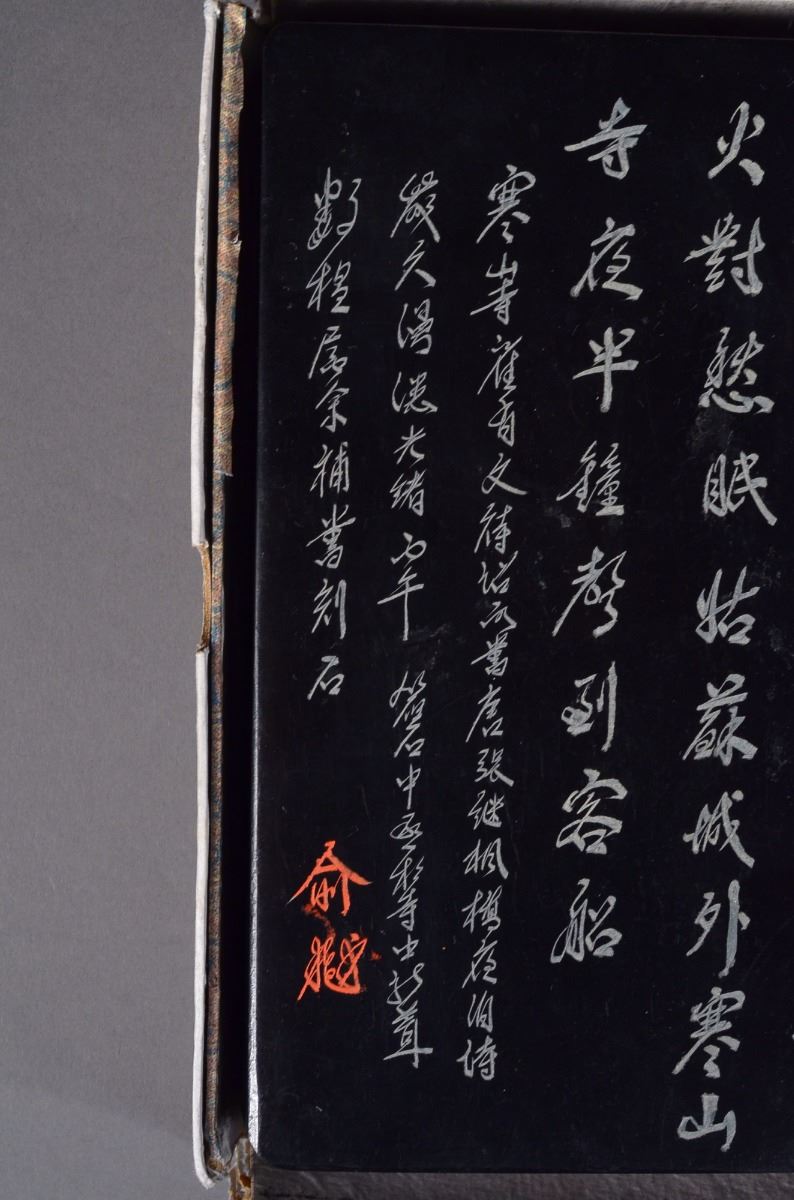 火對愁眠姑蘇城外寒山
寺夜半鐘聲到客船
寒山寺舊有文待詔所書唐張繼楓橋夜泊詩
歲久漫漶光緒丙午筱石中丞於寺中新葺
數楹屬余補書刻石
俞樾